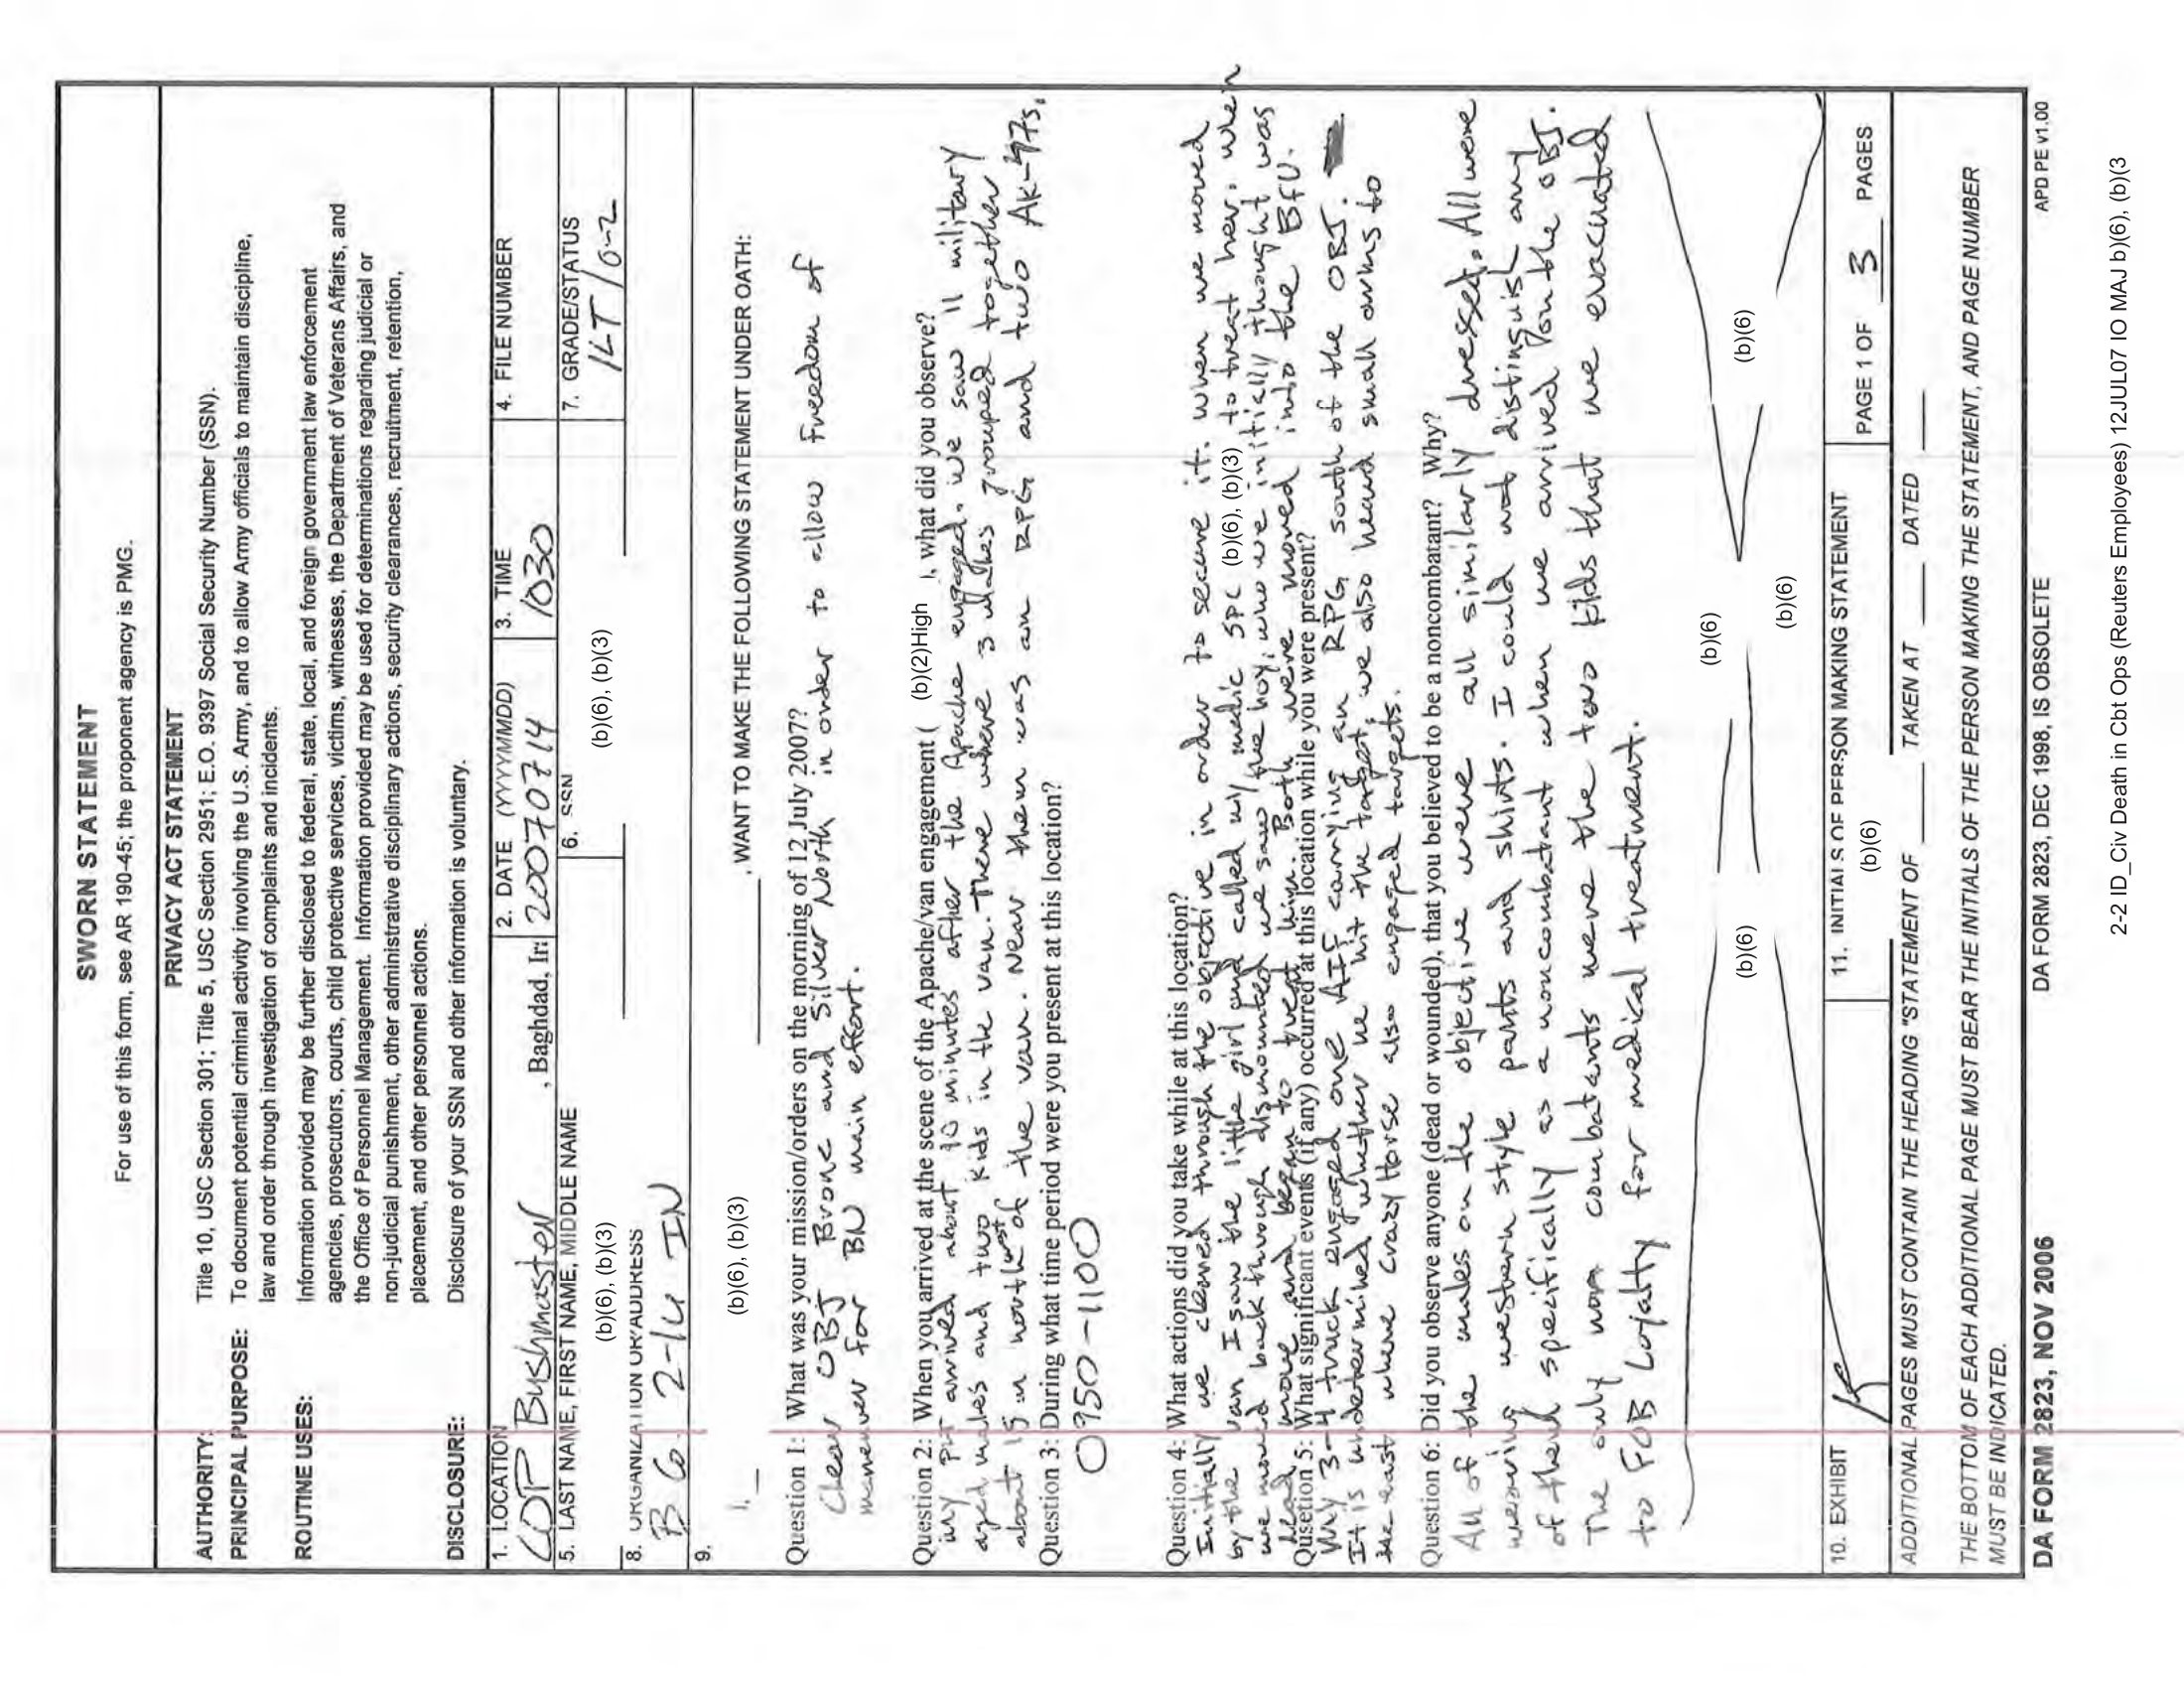 SWORN STATEMENT
For use of this form, see AR 190-45; the proponent agency is PMG.
PRIVACY ACT STATEMENT
AUTHORITY: Title 10, USC Section 301; Title 5, USC Section 2951; E.O. 9397 Social Security Number (SSN).
PRINCIPAL PURPOSE: To document potential criminal activity involving the U.S. Army, and to allow Army officials to maintain discipline,
law and order through investigation of complaints and incidents.
ROUTINE USES: Information provided may be further disclosed to federal, state, local, and foreign government law enforcement
agencies, prosecutors, courts, child protective services, victims, witnesses, the Department of Veterans Affairs, and
the Office of Personnel Management. Information provided may be used for determinations regarding judicial or
non-judicial punishment, other administrative disciplinary actions, security clearances, recruitment, retention,
placement, and other personnel actions.
DISCLOSURE: Disclosure of your SSN and other information is voluntary.
1. LOCATION 2. DATE (YYYYMMDD) 3. TIME 4. FILE NUMBER
COP Bushmaster , Baghdad, Ir 20070714 1030
5. LAST NAME, FIRST NAME, MIDDLE NAME 6. SSN 7. GRADE/STATUS
(b)(6), (b)(3) (b)(6), (b)(3) 1LT/O-2
8. ORGANIZATION OR ADDRESS
B Co. 2-16 IN
9.
I, (b)(6), (b)(3) , WANT TO MAKE THE FOLLOWING STATEMENT UNDER OATH:
Question 1: What was your mission/orders on the morning of 12 July 2007?
Clear OBJ Bronc and Silver North in order to allow freedom of
maneuver for BN main effort.
Question 2: When you arrived at the scene of the Apache/van engagement ( (b)(2)High ), what did you observe?
my PLT arrived about 10 minutes after the Apache engaged. we saw 11 military
aged males and two kids in the van. There where 3 males grouped together
about 15 m northwest of the van. Near them was an RPG and two AK-47s.
Question 3: During what time period were you present at this location?
0950-1100
Question 4: What actions did you take while at this location?
Initially we cleared through the objective in order to secure it. when we moved
by the van I saw the little girl and called my medic SPC (b)(6), (b)(3) to treat her. when
we moved back through dismounted we saw the boy, who we initially thought was
dead move and began to treat him. Both were moved into the BFV.
Qusetion 5: What significant events (if any) occurred at this location while you were present?
My 3-4 truck engaged one AIF carrying an RPG south of the OBJ.
It is undetermined whether we hit the target, we also heard small arms to
the east where Crazy Horse also engaged targets.
Question 6: Did you observe anyone (dead or wounded), that you believed to be a noncombatant? Why?
All of the males on the objective were all similarly dressed. All were
wearing western style pants and shirts. I could not distinguish any
of them specifically as a noncombatant when we arrived on the OBJ.
The only non combatants were the two kids that we evacuated
to FOB Loyalty for medical treatment.
(b)(6)
(b)(6)
(b)(6)
(b)(6)
10. EXHIBIT 11. INITIALS OF PERSON MAKING STATEMENT
(b)(6) PAGE 1 OF 3 PAGES
ADDITIONAL PAGES MUST CONTAIN THE HEADING "STATEMENT OF ____ TAKEN AT ____ DATED ____
THE BOTTOM OF EACH ADDITIONAL PAGE MUST BEAR THE INITIALS OF THE PERSON MAKING THE STATEMENT, AND PAGE NUMBER
MUST BE INDICATED.
DA FORM 2823, NOV 2006 DA FORM 2823, DEC 1998, IS OBSOLETE APD PE v1.00
2-2 ID_Civ Death in Cbt Ops (Reuters Employees) 12JUL07 IO MAJ b)(6), (b)(3